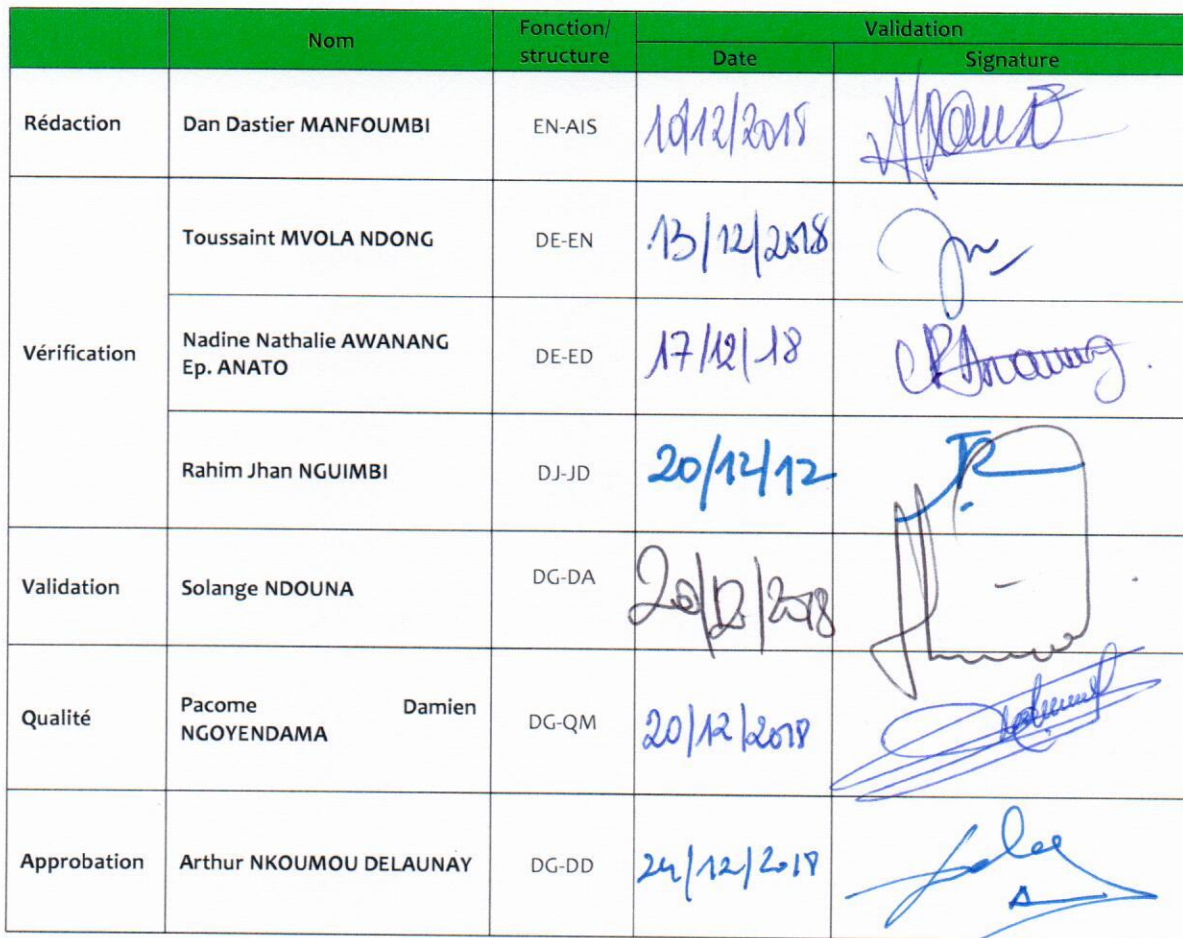 Nom
Fonction/
structure
Validation
Date
Signature
Rédaction
Dan Dastier MANFOUMBI
EN-AIS
10/12/2018
Vérification
Toussaint MVOLA NDONG
DE-EN
13/12/2018
Nadine Nathalie AWANANG
Ep. ANATO
DE-ED
17/12/18
Rahim Jhan NGUIMBI
DJ-JD
20/12/12
Validation
Solange NDOUNA
DG-DA
20/12/2018
Qualité
Pacome Damien
NGOYENDAMA
DG-QM
20/12/2018
Approbation
Arthur NKOUMOU DELAUNAY
DG-DD
24/12/2018